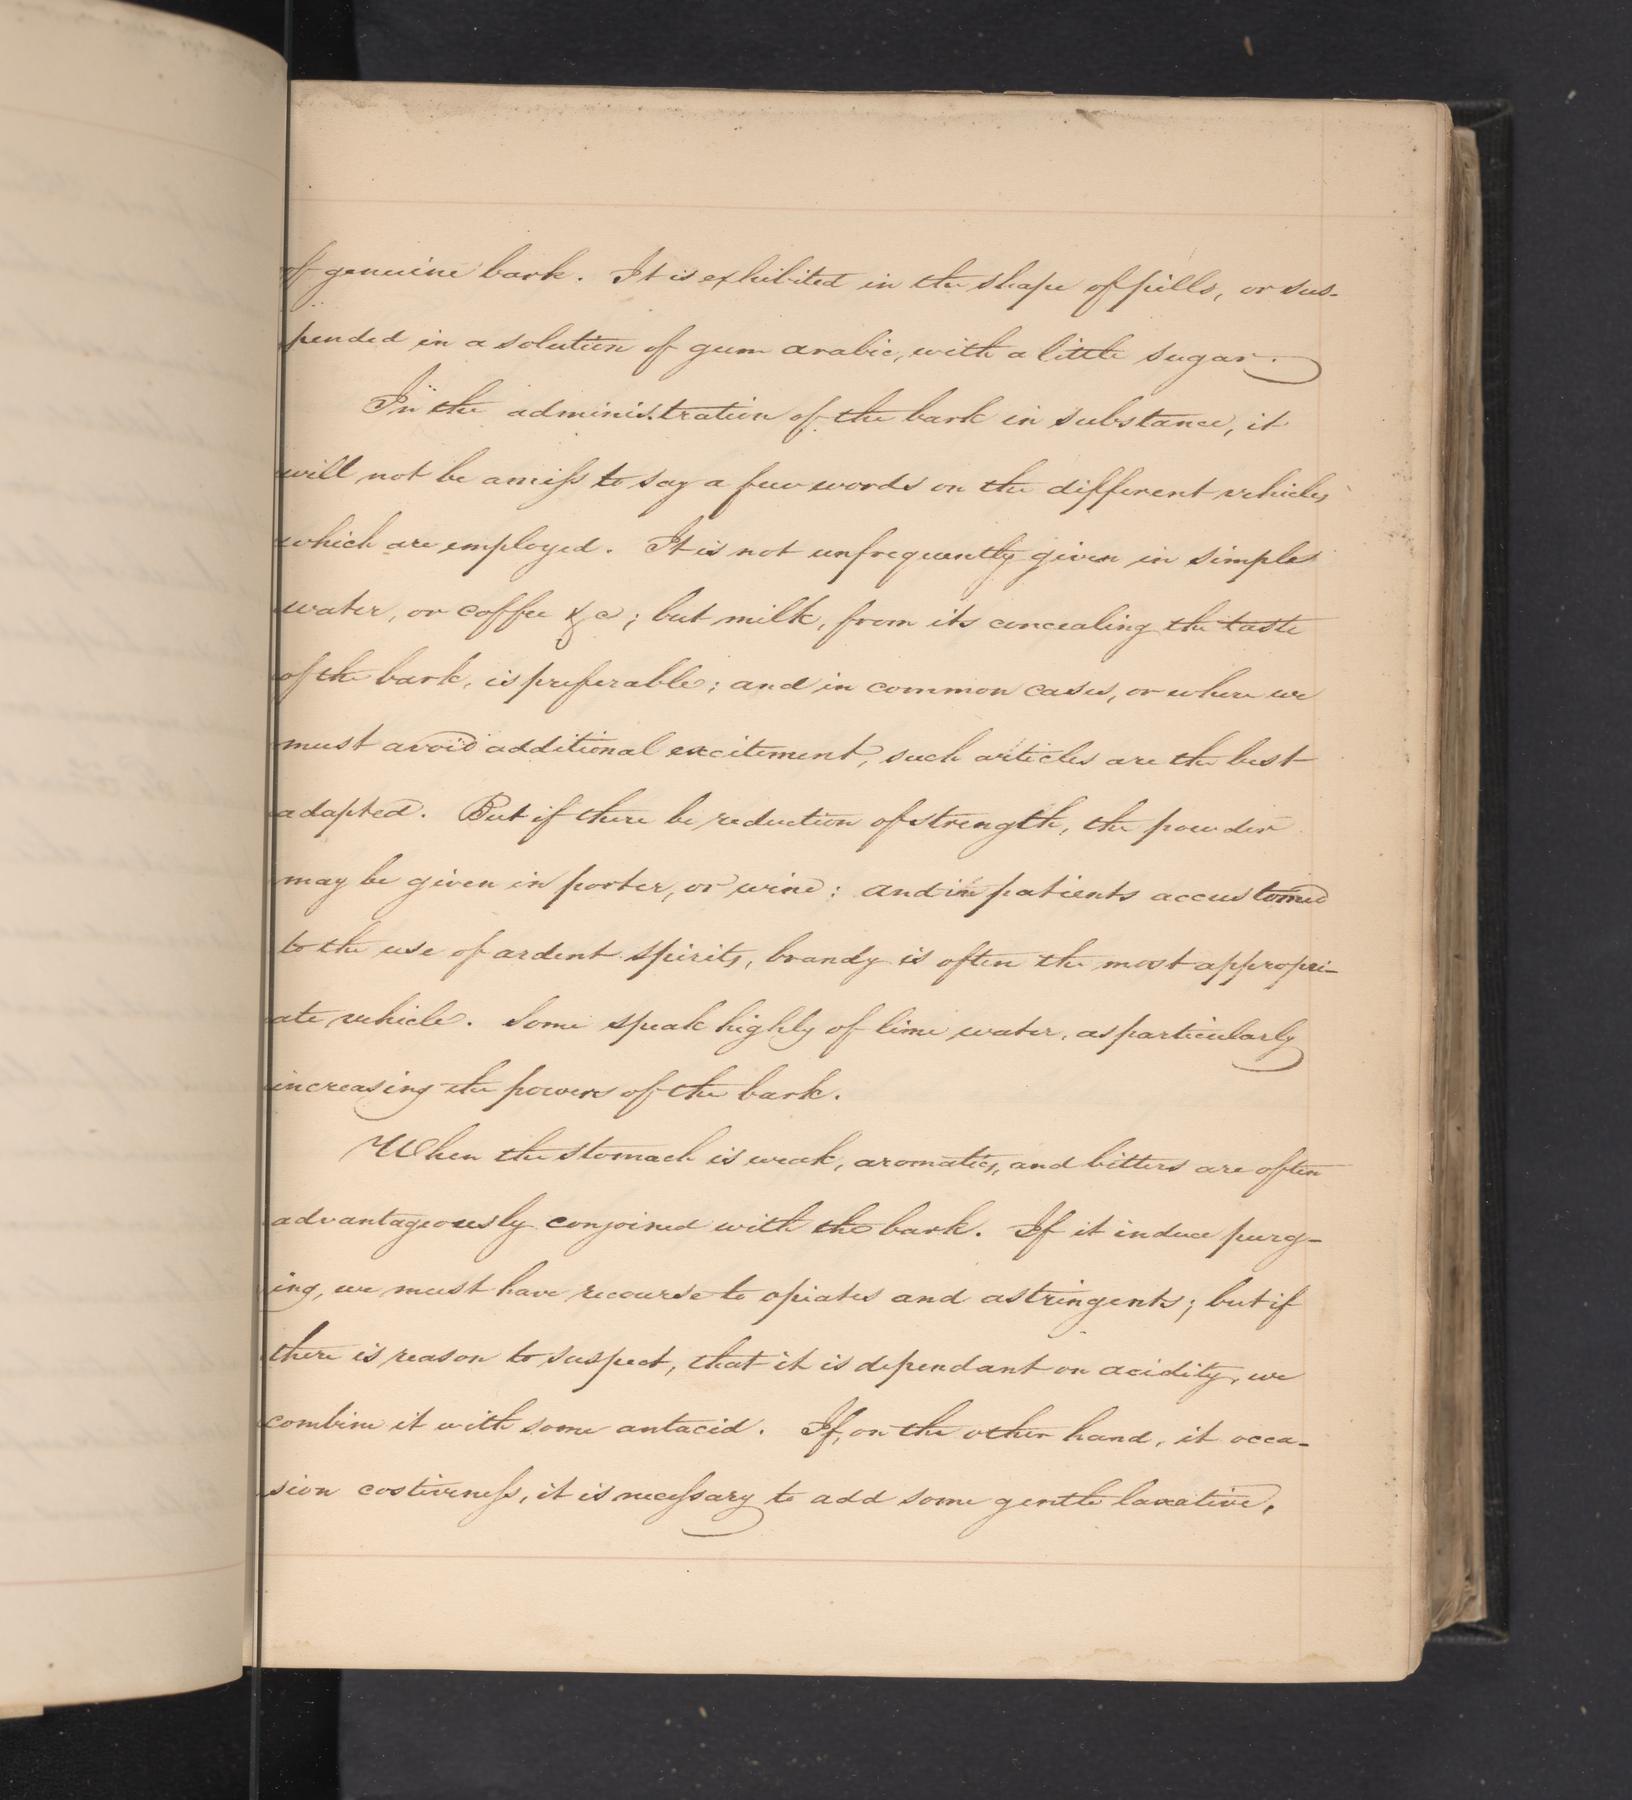 of genuine bark. It is exhibited in the shape of pills, or sus-
pended in a solution of gum arabic, with a little sugar.
In the administration of the bark in substance, it
will not be amiss to say a few words on the different vehicles
which are employed. It is not unfrequently given in simple
water, or coffee &c; but milk, from its concealing the taste
of the bark, is preferable; and in common cases, or where we
must avoid additional excitement, such articles are the best
adapted. But if there be reduction of strength, the powder
may be given in porter, or wine: and in patients accustomed
to the use of ardent spirits, brandy is often the most appropri-
ate vehicle. Some speak highly of lime water, as particularly
increasing the powers of the bark.
When the stomach is weak, aromatics, and bitters are often
advantageously conjoined with the bark. If it induce purg-
ing, we must have recourse to opiates and astringents; but if
there is reason to suspect, that it is dependant on acidity, we
combine it with some antacid. If, on the other hand, it occa-
sion costiveness, it is necessary to add some gentle laxative,